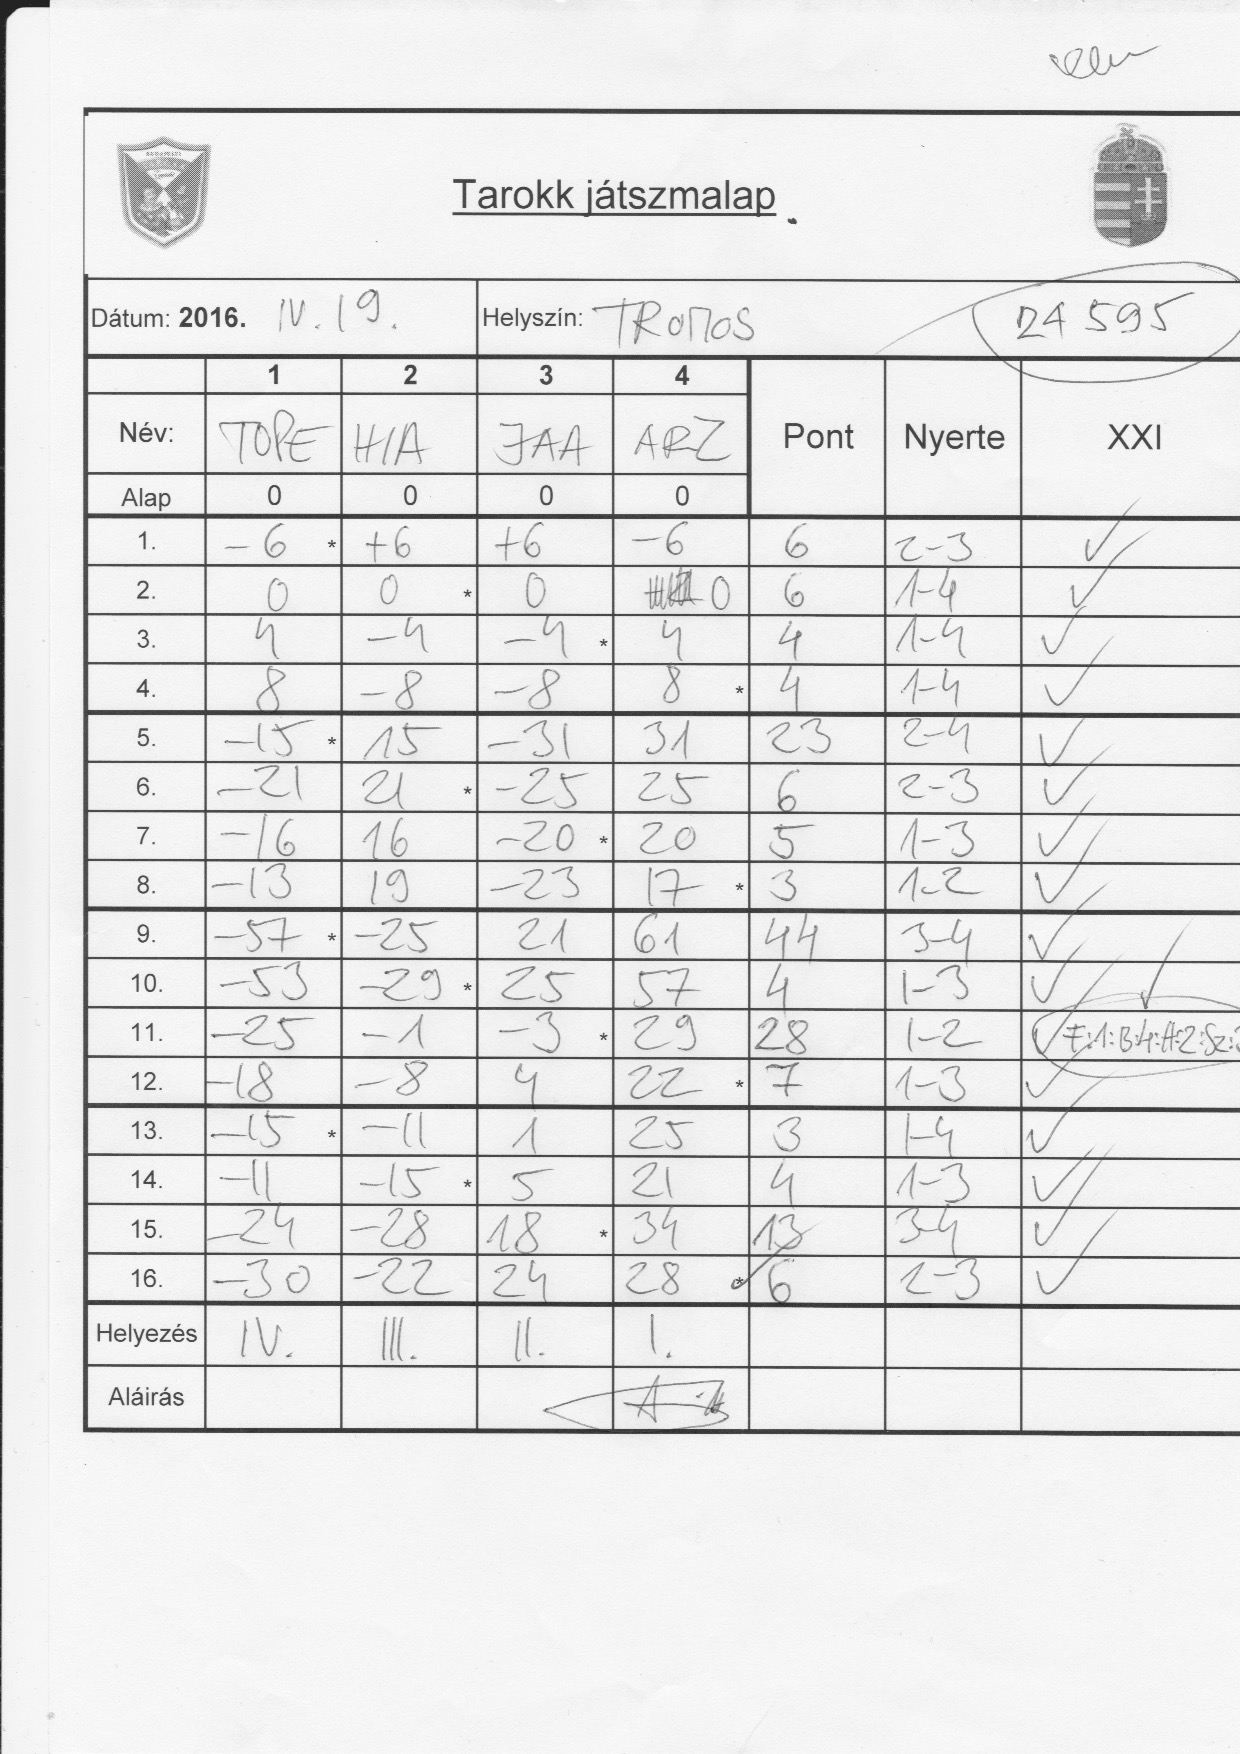 Tarokk játszmalap
Dátum: 2016. IV. 19. Helyszín: TROMOS 24 595
1 2 3 4
Név: TOPE HIA JAA ARZ Pont Nyerte XXI
Alap 0 0 0 0
1. -6 * +6 +6 -6 6 2-3 ✓
2. 0 0 * 0 0 6 1-4 ✓
3. 4 -4 -4 * 4 4 1-4 ✓
4. 8 -8 -8 8 * 4 1-4 ✓
5. -15 * 15 -31 31 23 2-4 ✓
6. -21 21 * -25 25 6 2-3 ✓
7. -16 16 -20 * 20 5 1-3 ✓
8. -13 19 -23 17 * 3 1-2 ✓
9. -57 * -25 21 61 44 3-4 ✓
10. -53 -29 * 25 57 4 1-3 ✓
11. -25 -1 -3 * 29 28 1-2 ✓
12. -18 -8 4 22 * 7 1-3 ✓
13. -15 * -11 1 25 3 1-4 ✓
14. -11 -15 * 5 21 4 1-3 ✓
15. -24 -28 18 * 34 13 3-4 ✓
16. -30 -22 24 28 * 6 2-3 ✓
Helyezés IV. III. II. I.
Aláírás